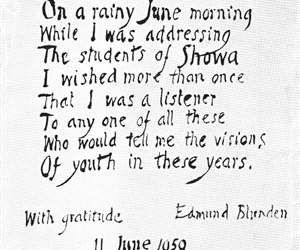 On a rainy June morning
While I was addressing
The students of Showa
I wished more than once
That I was a listener
To any one of all these
Who would tell me the visions
Of youth in these years.
With gratitude Edmund Blunden
11 June 1959